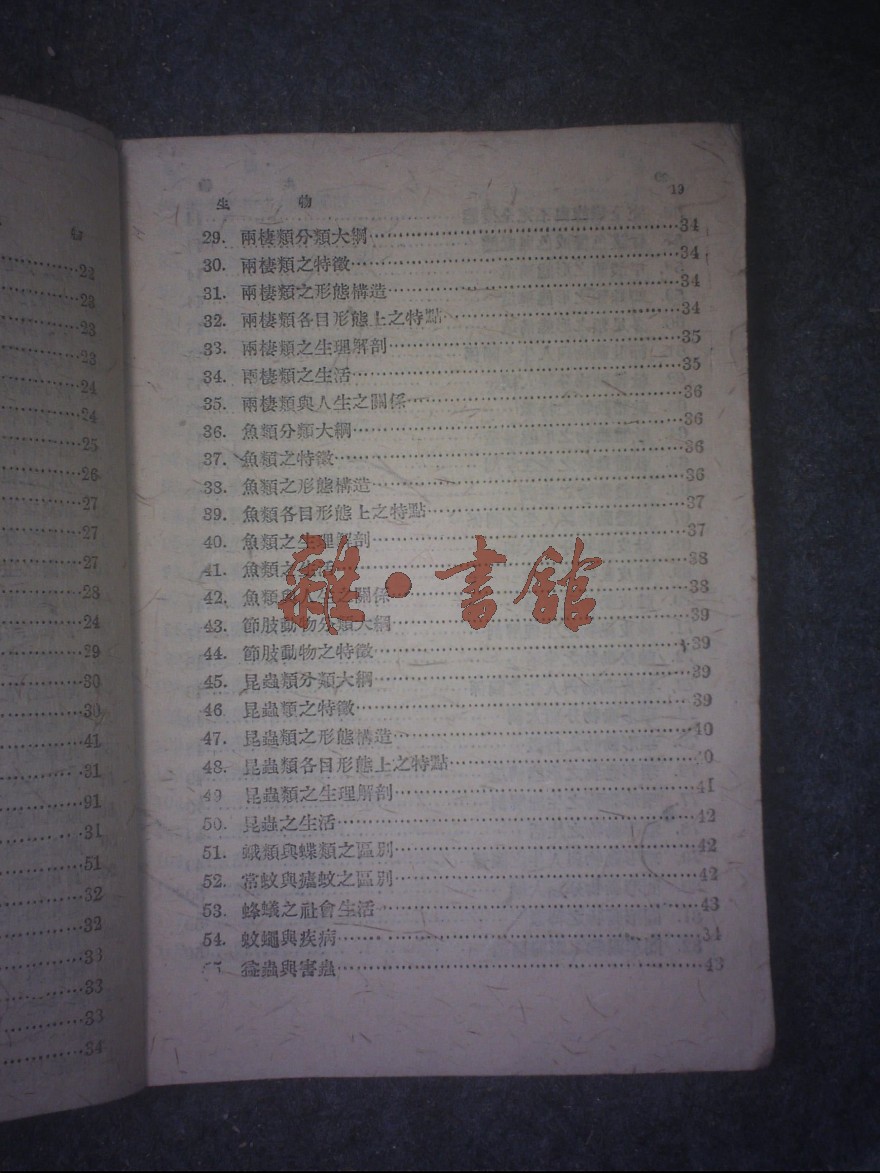 22
23
23
23
24
24
25
26
27
27
27
28
24
29
30
30
41
31
91
31
51
32
32
33
33
33
34
生 物 19
29. 兩棲類分類大綱 34
30. 兩棲類之特徵 34
31. 兩棲類之形態構造 34
32. 兩棲類各目形態上之特點 34
33. 兩棲類之生理解剖 35
34. 兩棲類之生活 35
35. 兩棲類與人生之關係 36
36. 魚類分類大綱 36
37. 魚類之特徵 36
38. 魚類之形態構造 36
39. 魚類各目形態上之特點 37
40. 魚類之生理解剖 37
41. 魚類之生活 38
42. 魚類與人生之關係 38
43. 節肢動物分類大綱 39
44. 節肢動物之特徵 39
45. 昆蟲類分類大綱 39
46. 昆蟲類之特徵 39
47. 昆蟲類之形態構造 40
48. 昆蟲類各目形態上之特點 40
49 昆蟲類之生理解剖 41
50. 昆蟲之生活 42
51. 蛾類與蝶類之區別 42
52. 常蚊與瘧蚊之區別 42
53. 蜂蟻之社會生活 43
54. 蚊蠅與疾病 34
益蟲與害蟲 43
雜·書館